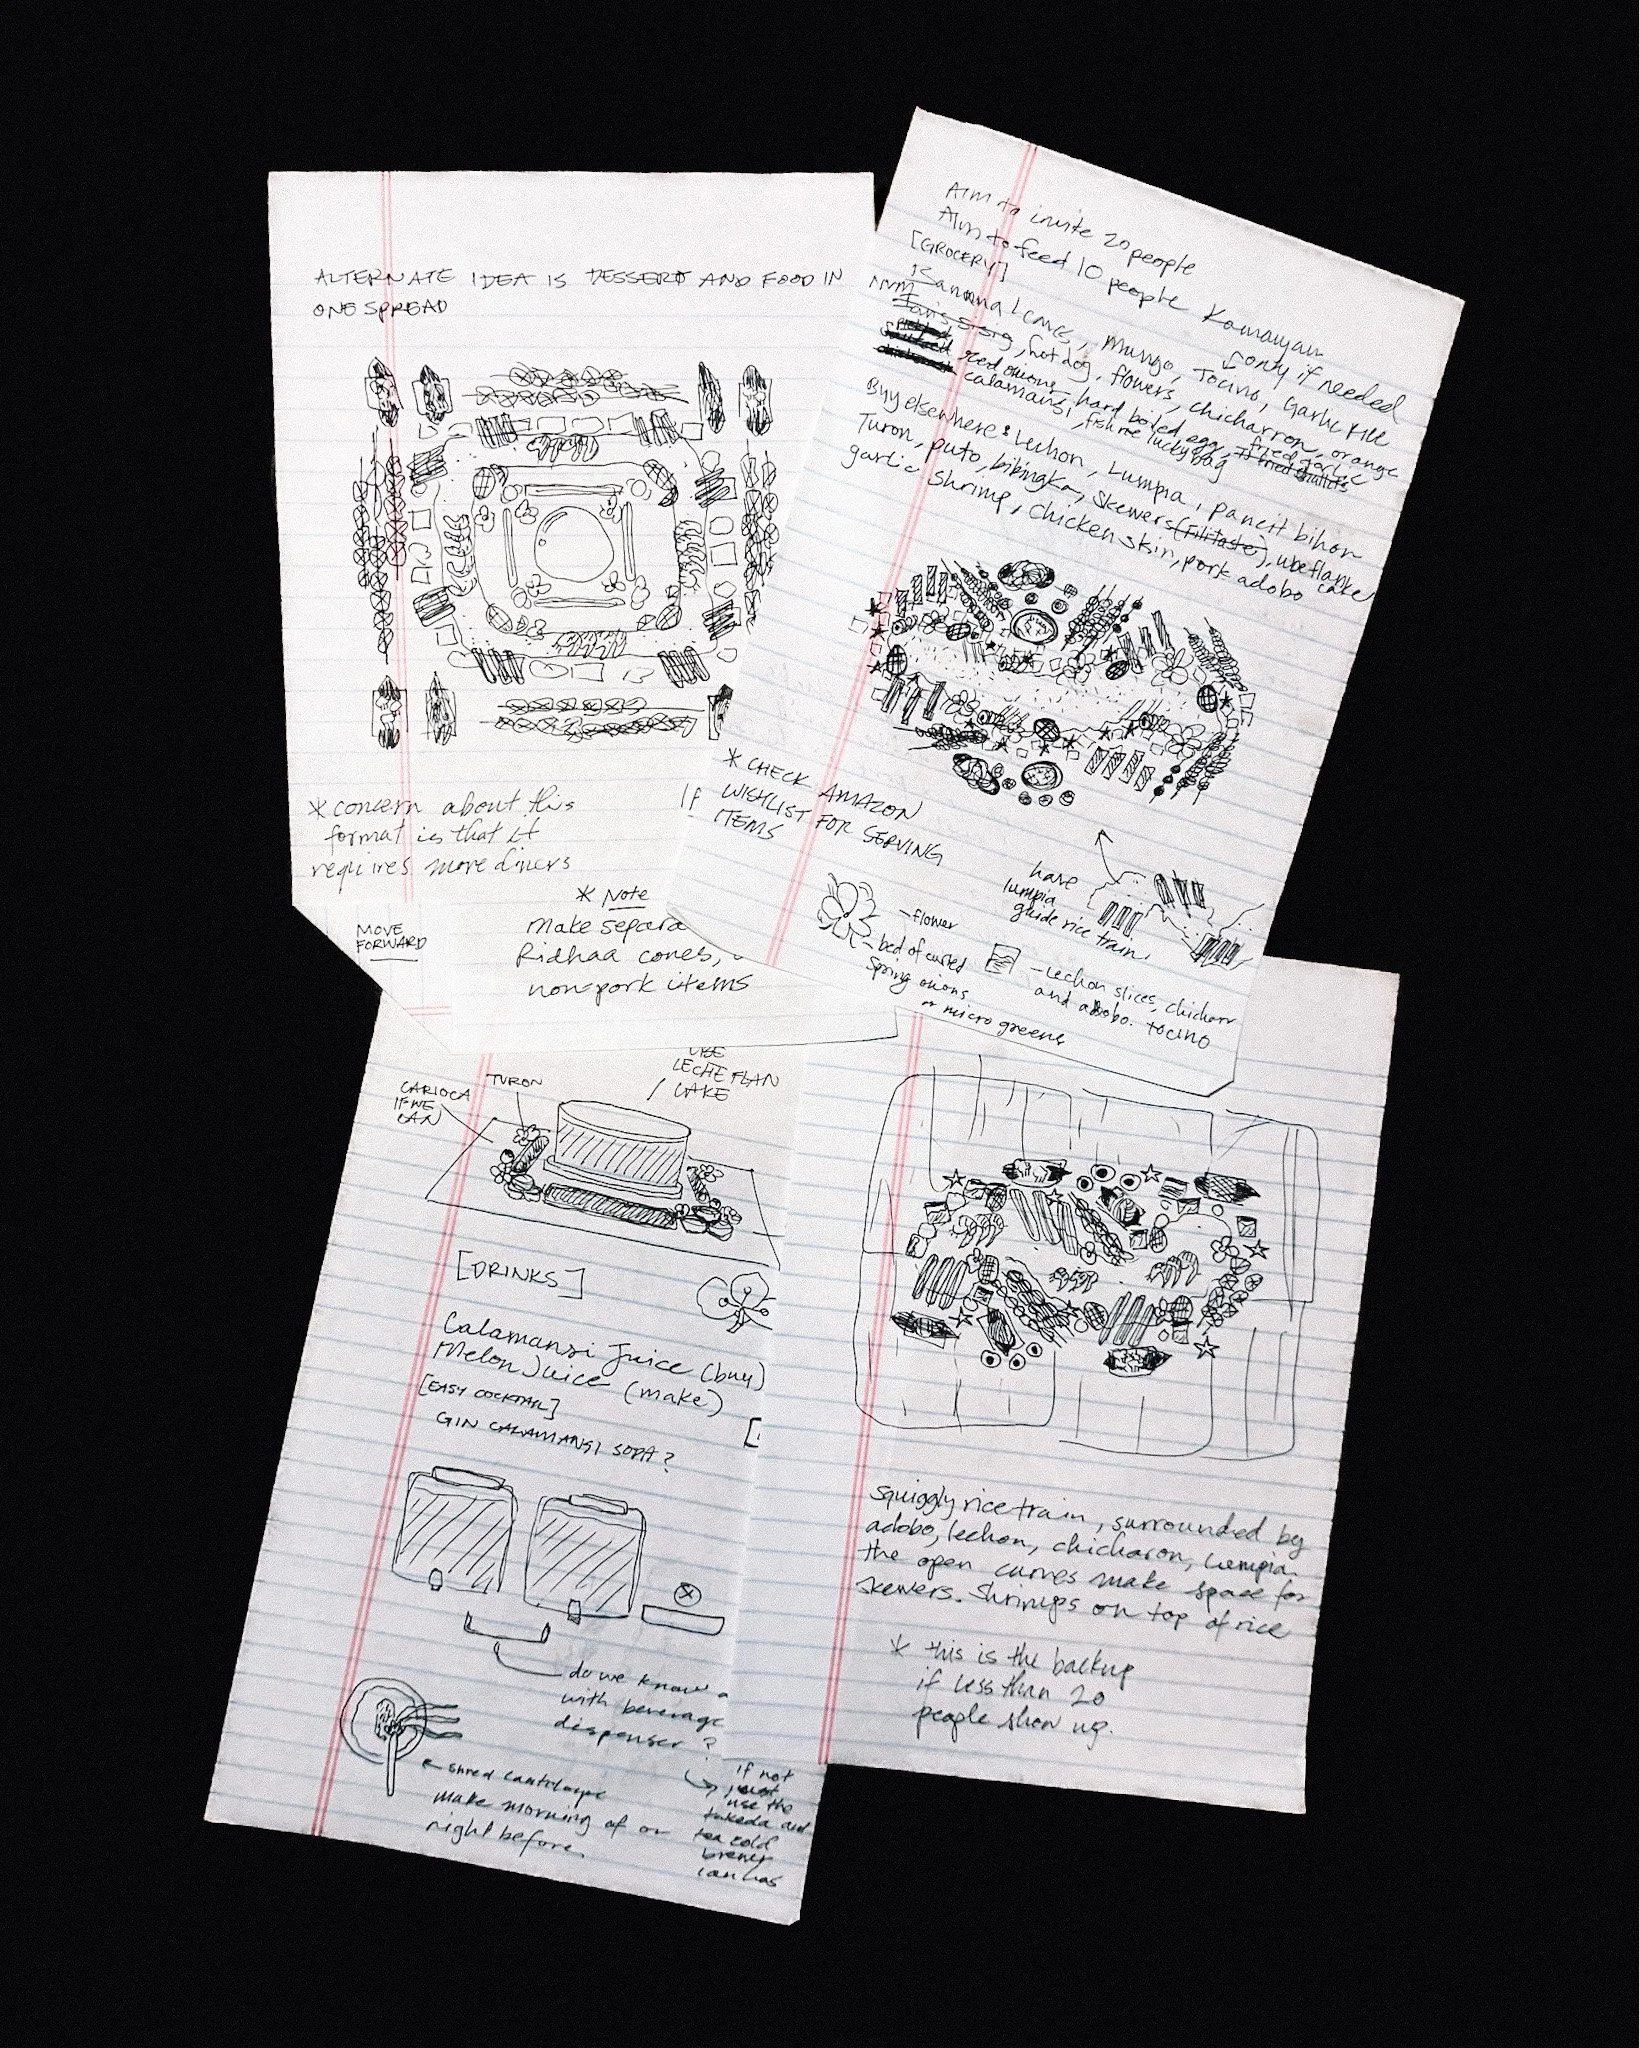 ALTERNATE IDEA IS DESSERT AND FOOD IN
ONE SPREAD
* concern about this
format is that it
requires more diners
MOVE
FORWARD
* Note
Make separa
Ridhaa cones,
non-pork items
If
Aim to invite 20 people
Aim to feed 10 people Kamayan
[GROCERY]
only if needed
Banana leaves, Mungo, Tocino, Garlic rice
NVM
sisig, hot dog, flowers, chicharron, orange
red onions, hard boiled egg, fried garlic
fried shallots
calamansi, fish me lucky bag
Buy elsewhere: Lechon, Lumpia, pancit bihon
Turon, puto, bibingka, skewers (filitaste), ube flan cake
garlic shrimp, chicken skin, pork adobo
* CHECK AMAZON
WISHLIST FOR SERVING
ITEMS
have
lumpia
guide rice train.
- flower
- bed of curled
spring onions
or micro greens
- Lechon slices, chicharr
and adobo. tocino
UBE
LECHE FLAN
CAKE
TURON
CARIOCA
IF WE
CAN
[DRINKS]
Calamansi Juice (buy)
Melon Juice (make)
[EASY COCKTAIL]
GIN CALAMANSI SODA?
[
do we know a
with beverage
dispenser?
if not
just
use the
takeda and
tea cold
brewer
ian has
shred cantaloupe
make morning of or
night before
squiggly rice train, surrounded by
adobo, lechon, chicharon, lumpia.
the open curves make space for
skewers. Shrimps on top of rice
* this is the backup
if less than 20
people show up.